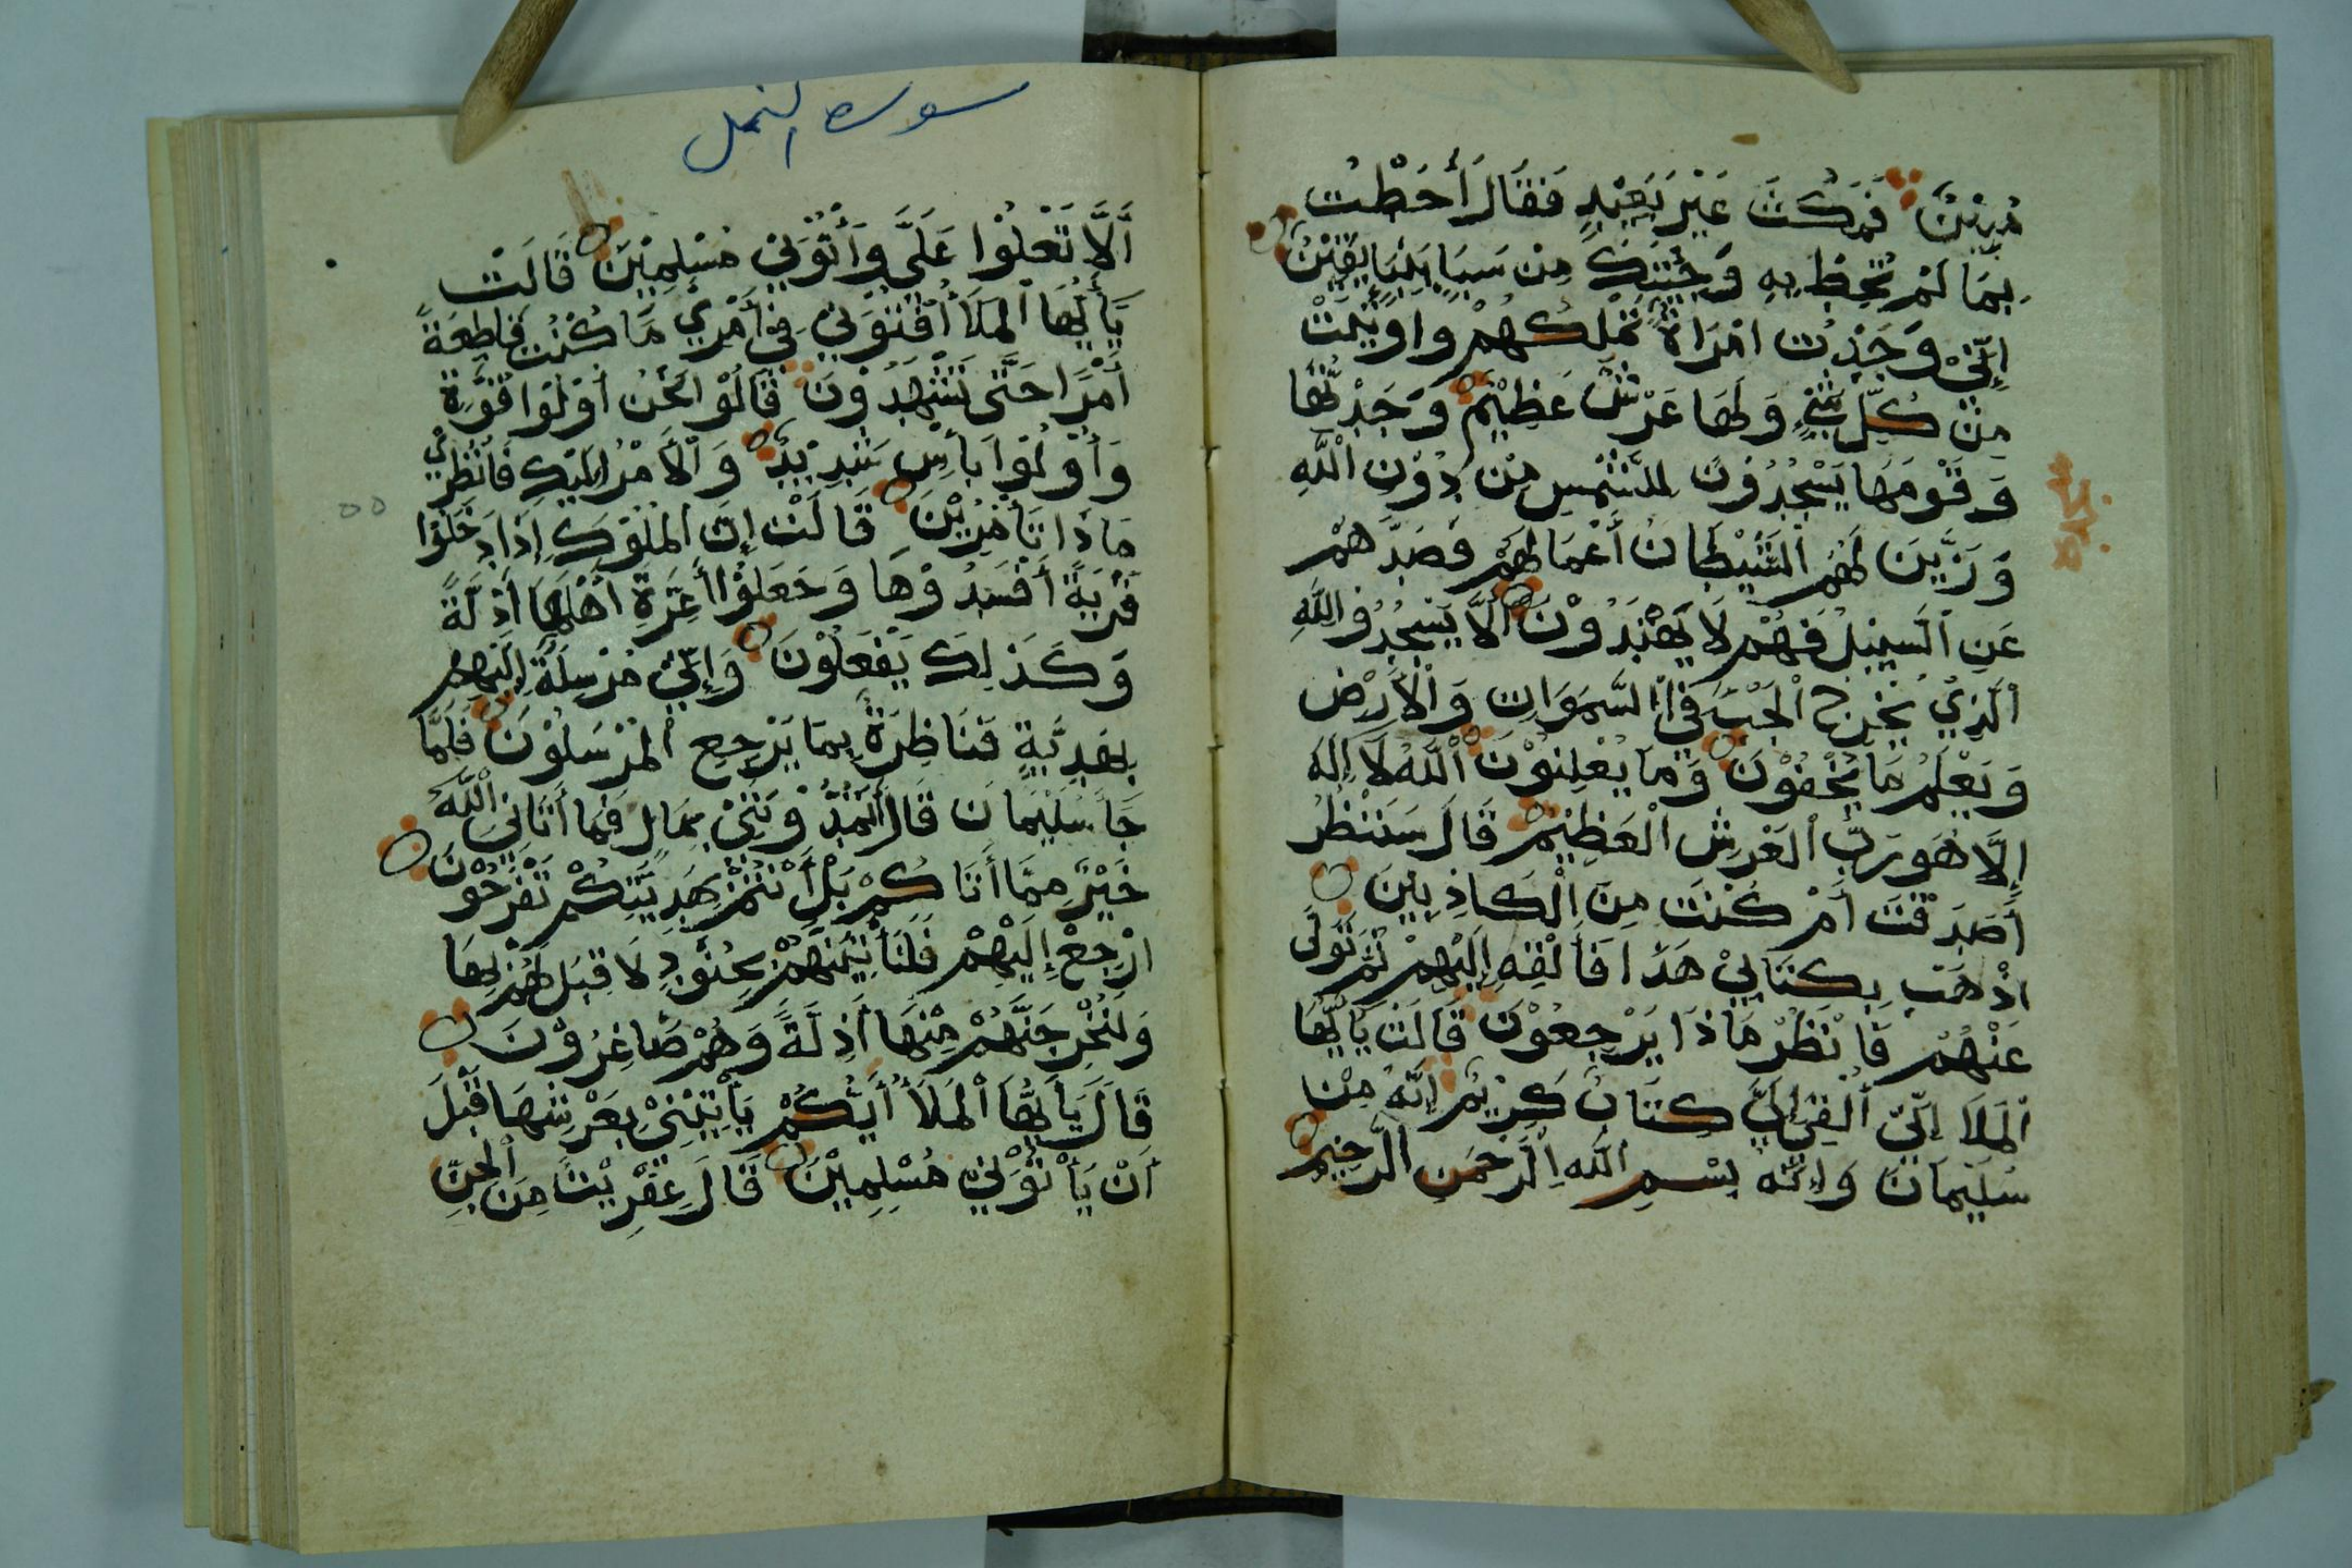 مُبِيْنٍ فَمَكَثَ غَيْرَ بَعِيْدٍ فَقَالَ أَحَطْتُ
بِمَا لَمْ تُحِطْ بِهِ وَجِئْتُكَ مِنْ سَبَإٍ بِنَبَإٍ يَقِيْنٍ
إِنِّيْ وَجَدْتُ امْرَاةً تَمْلِكُهُمْ وَاوُتِيَتْ
مِنْ كُلِّ شَيْءٍ وَلَهَا عَرْشٌ عَظِيْمٌ وَجَدْتُهَا
وَقَوْمَهَا يَسْجُدُوْنَ لِلشَّمْسِ مِنْ دُوْنِ اللَّهِ
وَزَيَّنَ لَهُمُ الشَّيْطَانُ أَعْمَالَهُمْ فَصَدَّهُمْ
عَنِ السَّبِيْلِ فَهُمْ لَا يَهْتَدُوْنَ أَلَّا يَسْجُدُوْا لِلَّهِ
الَّذِيْ يُخْرِجُ الْخَبْءَ فِيْ السَّمَوَاتِ وَالْأَرْضِ
وَيَعْلَمُ مَا يُخْفُوْنَ وَمَا يُعْلِنُوْنَ اللَّهُ لَا إِلَهَ
إِلَّا هُوَ رَبُّ الْعَرْشِ الْعَظِيْمِ قَالَ سَنَنْظُرُ
أَصَدَقْتَ أَمْ كُنْتَ مِنَ الْكَاذِبِيْنَ
اذْهَبْ بِكِتَابِيْ هَذَا فَأَلْقِهِ إِلَيْهِمْ ثُمَّ تَوَلَّى
عَنْهُمْ فَانْظُرْ مَاذَا يَرْجِعُوْنَ قَالَتْ يَا أَيُّهَا
الْمَلَا إِنِّيْ أُلْقِيَ إِلَيَّ كِتَابٌ كَرِيْمٌ إِنَّهُ مِنْ
سُلَيْمَانَ وَإِنَّهُ بِسْمِ اللَّهِ الرَّحْمَنِ الرَّحِيْمِ
سوره النمل
أَلَّا تَعْلُوْا عَلَيَّ وَأْتُوْنِيْ مُسْلِمِيْنَ قَالَتْ
يَاأَيُّهَا الْمَلَأُ أَفْتُوْنِيْ فِيْ أَمْرِيْ مَا كُنْتُ قَاطِعَةً
أَمْرًا حَتَّى تَشْهَدُوْنَ قَالُوْا نَحْنُ أُوْلُوْا قُوَّةٍ
وَأُوْلُوْا بَأْسٍ شَدِيْدٍ وَالْأَمْرُ إِلَيْكِ فَانْظُرِيْ
مَاذَا تَأْمُرِيْنَ قَالَتْ إِنَّ الْمُلُوْكَ إِذَا دَخَلُوْا
قَرْيَةً أَفْسَدُوْهَا وَجَعَلُوْا أَعِزَّةَ أَهْلِهَا أَذِلَّةً
وَكَذَلِكَ يَفْعَلُوْنَ وَإِنِّيْ مُرْسِلَةٌ إِلَيْهِمْ
بِهَدِيَّةٍ فَنَاظِرَةٌ بِمَا يَرْجِعِ الْمُرْسَلُوْنَ فَلَمَّا
جَاءَ سُلَيْمَانَ قَالَ أَتُمِدُّوْنَنِيْ بِمَالٍ فَمَا أَتَانِيَ اللَّهُ
خَيْرٌ مِمَّا أَتَاكُمْ بَلْ أَنْتُمْ بِهَدِيَّتِكُمْ تَفْرَحُوْنَ
ارْجِعْ إِلَيْهِمْ فَلَنَأْتِيَنَّهُمْ بِجُنُوْدٍ لَا قِبَلَ لَهُمْ بِهَا
وَلَنُخْرِجَنَّهُمْ مِنْهَا أَذِلَّةً وَهُمْ صَاغِرُوْنَ
قَالَ يَا أَيُّهَا الْمَلَأُ أَيُّكُمْ يَأْتِيْنِيْ بِعَرْشِهَا قَبْلَ
أَنْ يَأْتُوْنِيْ مُسْلِمِيْنَ قَالَ عِفْرِيْتٌ مِنَ الْجِنِّ